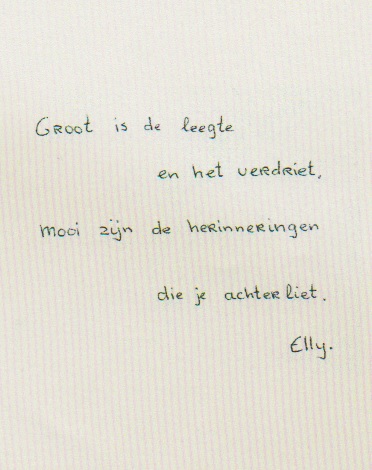 Groot is de leegte
en het verdriet,
mooi zijn de herinneringen
die je achterliet.
Elly.